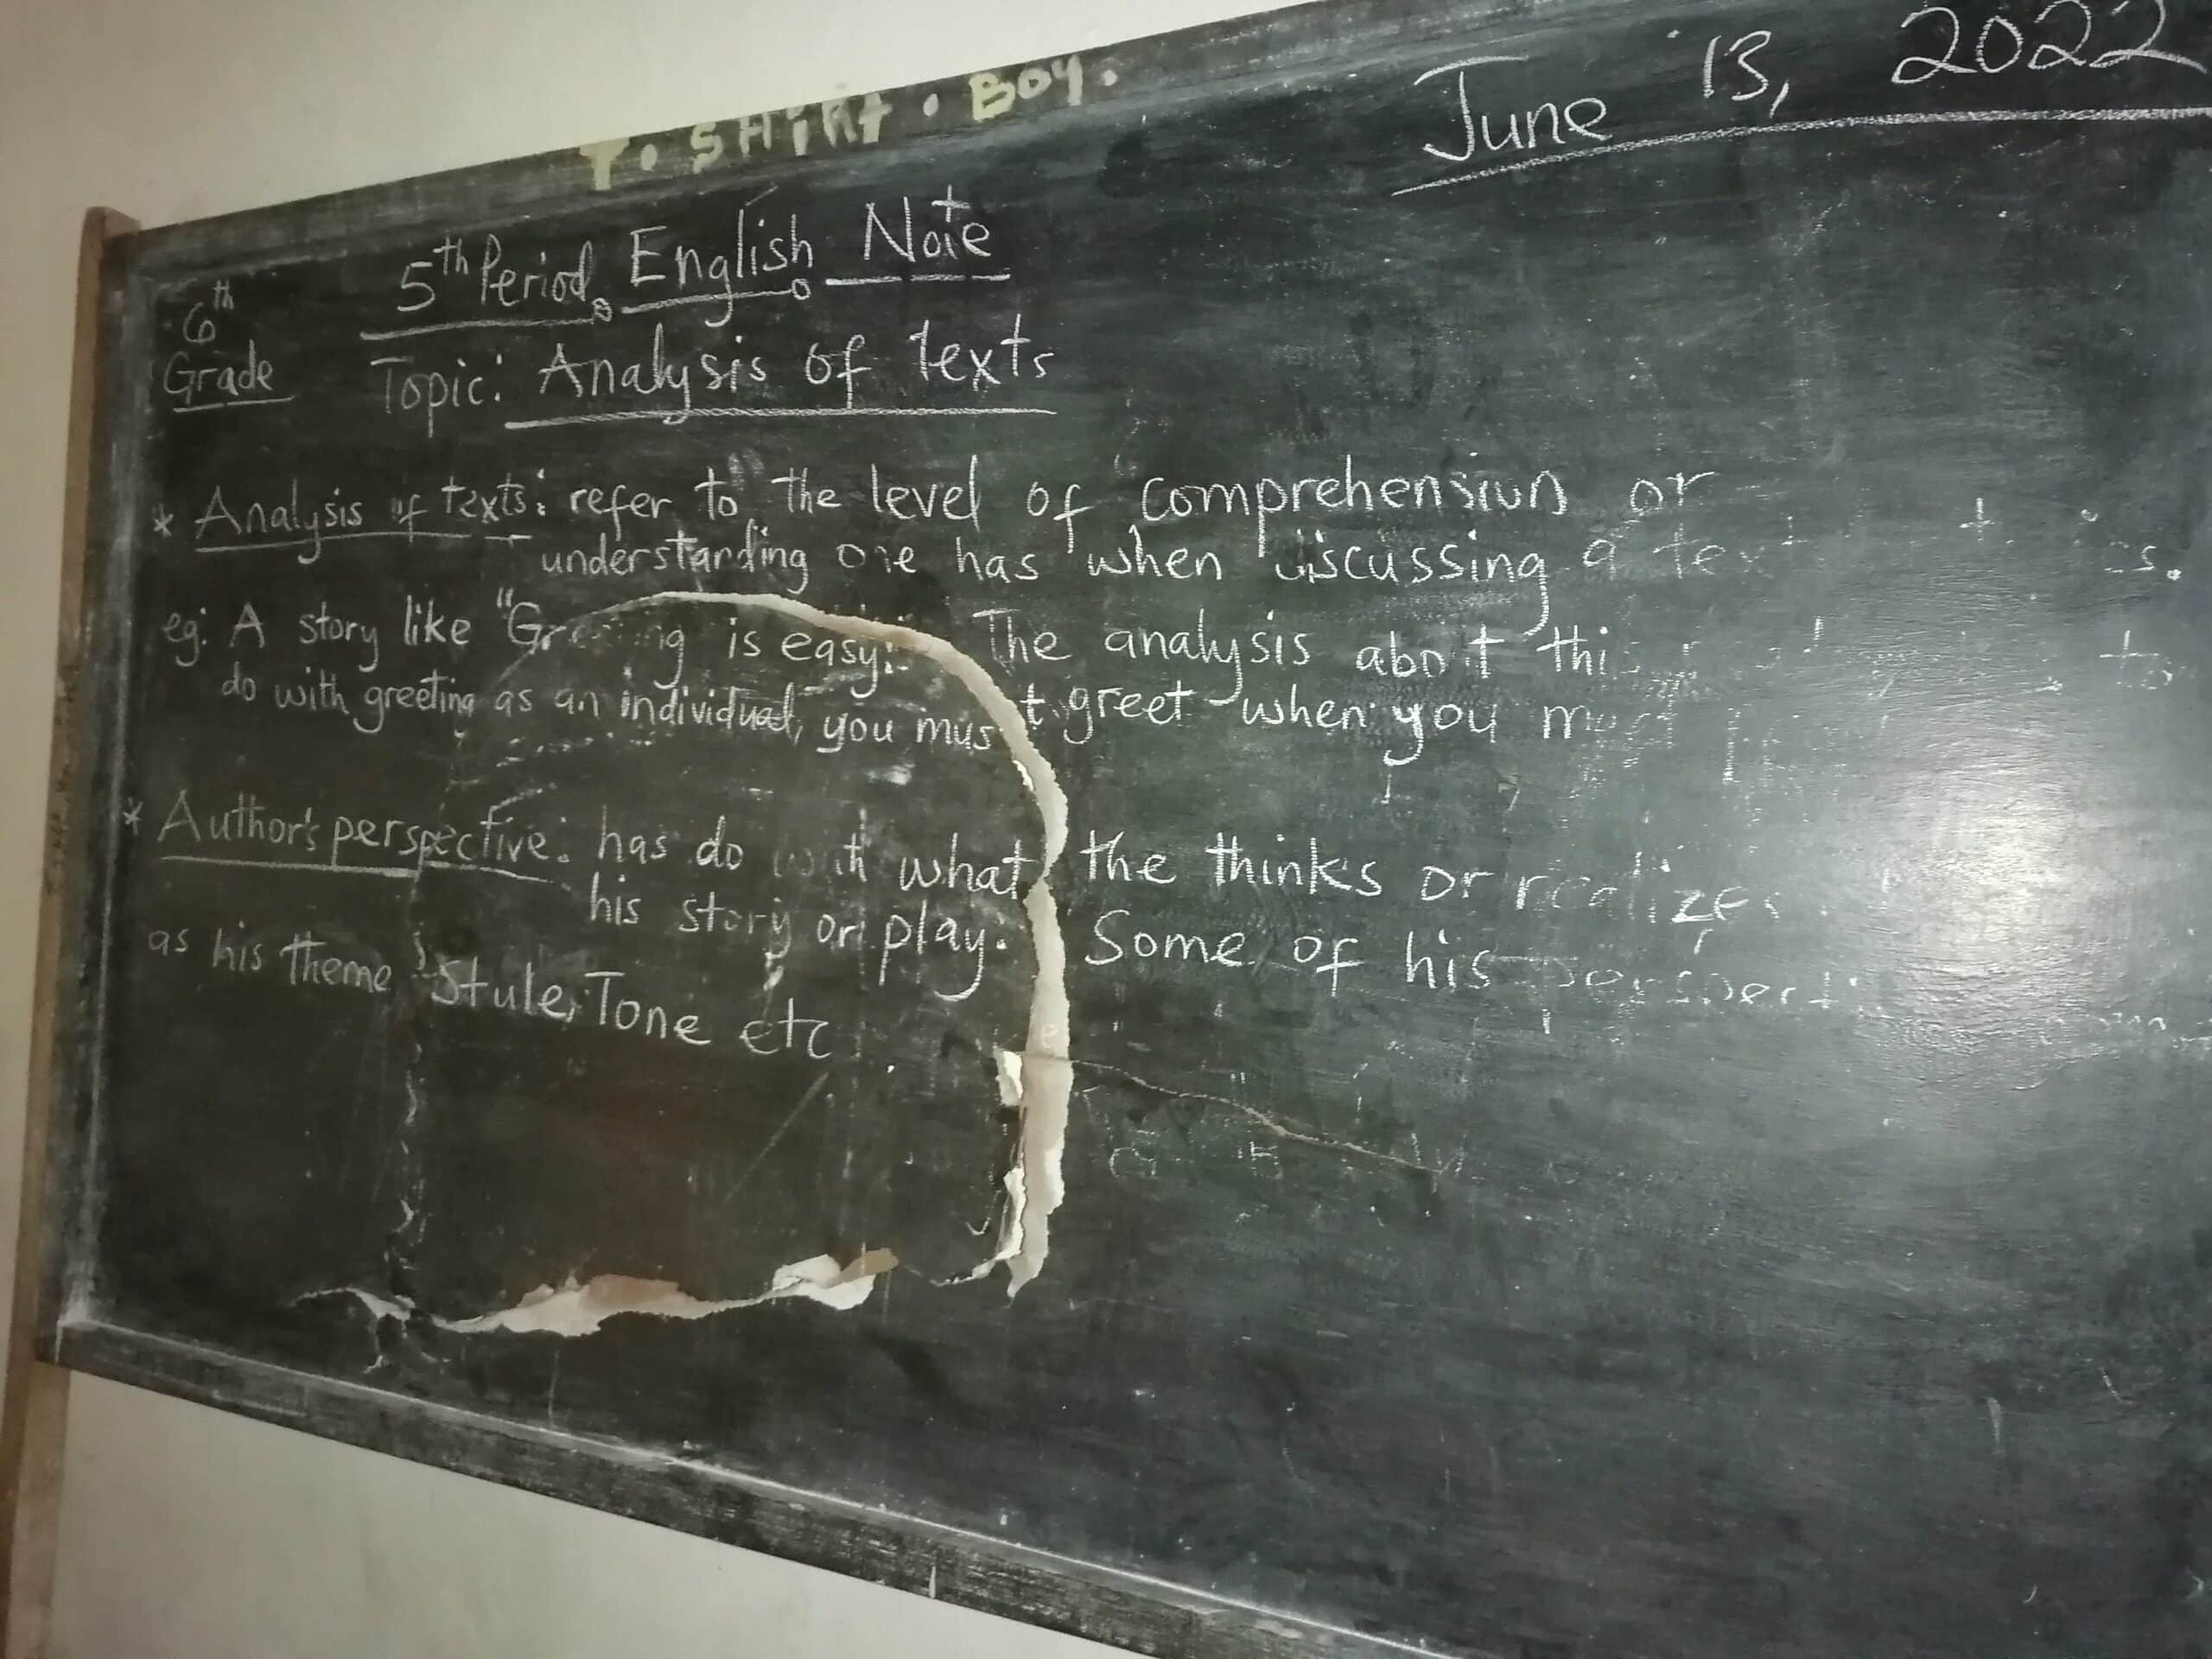 T. SHiRt. BOY.
June 13, 2022
5th Period English Note
6th
Grade
Topic: Analysis of texts
* Analysis of texts: refer to the level of comprehension or
understanding one has when discussing a text
eg: A story like "Greeting is easy." The analysis about this to
do with greeting as an individual, you must greet when you
* Author's perspective: has do with what the thinks or realizes
his story or play. Some of his
as his theme, Style, Tone etc